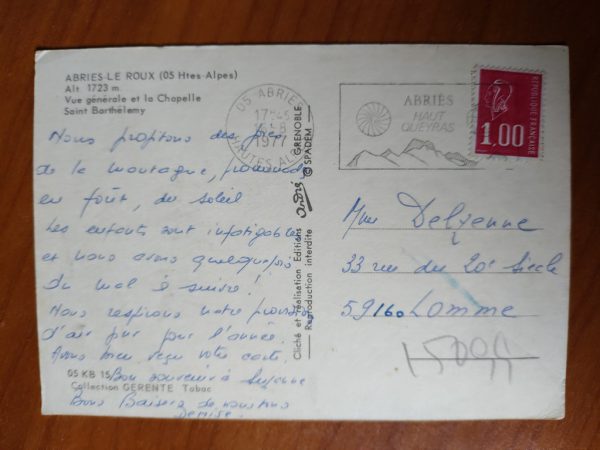 ABRIES-LE ROUX (05 Htes-Alpes)
Alt. 1723 m.
Vue générale et la Chapelle
Saint Barthélemy
Nous profitons des joies
de la montagne, promenades
en forêt, du soleil
Les enfants sont infatigables
et nous avons quelquefois
du mal à suivre !
Nous respirons notre provision
d'air pur pour l'année.
Avons bien reçu votre carte.
Bon souvenir à Suzanne
Bons Baisers de nous tous
Denise.
05 KB 15
Collection GERENTE Tabac
Cliché et réalisation Editions André GRENOBLE
Reproduction interdite © SPADEM
05 ABRIES
17H
1977
HAUTES ALPES
ABRIÈS
HAUT
QUEYRAS
1,00
REPUBLIQUE FRANÇAISE
Mme Delyenne
33 rue du 20e Siècle
59160 Lomme